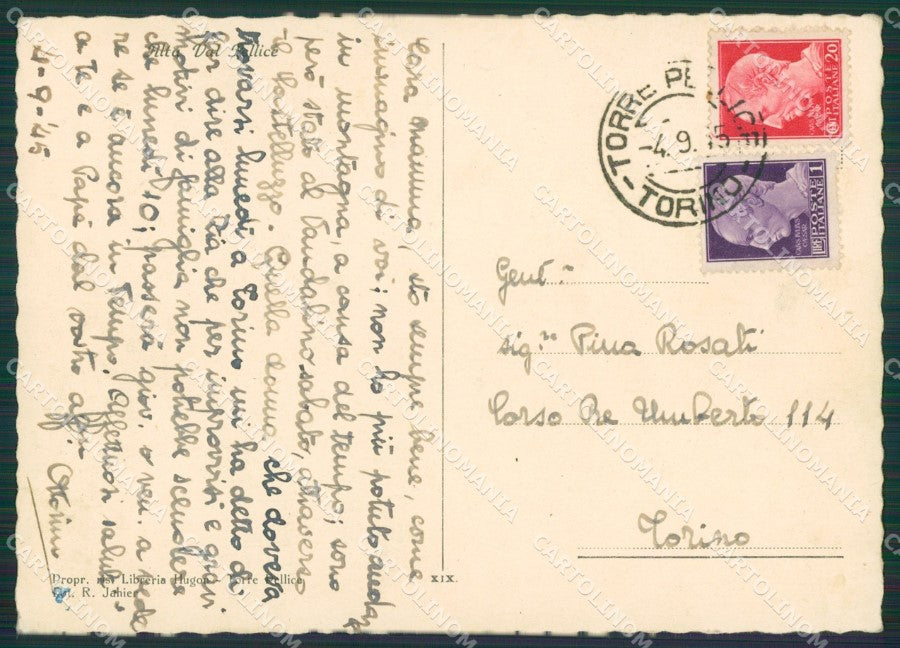 Alta Val Pellice
4-9-45
Cara mamma, sto sempre bene, come
immagino di voi; non ho più potuto andar
in montagna, a causa del tempo; sono
però stato al Vandalino sabato, attraverso
il Castelluzzo. Quella donna che doveva
trovarsi lunedì a Torino mi ha detto di
far dire alla Zia che per improvvisi e gravi
motivi di famiglia non potrebbe scendere
che lunedì 10; passerà giov. o ven. a vede
re se è ancora in tempo. Affettuosi saluti
a Te e a Papà dal vostro aff.
Propr. ris. Libreria Hugon - Torre Pellice
Fot. R. Jahier
XIX.
TORRE PELLICE
4.9.45
TORINO
20
POSTE ITALIANE
1
POSTE ITALIANE
Gent.
sig.ra Pina Rosati
Corso Re Umberto 114
Torino
CARTOLINOMANIA